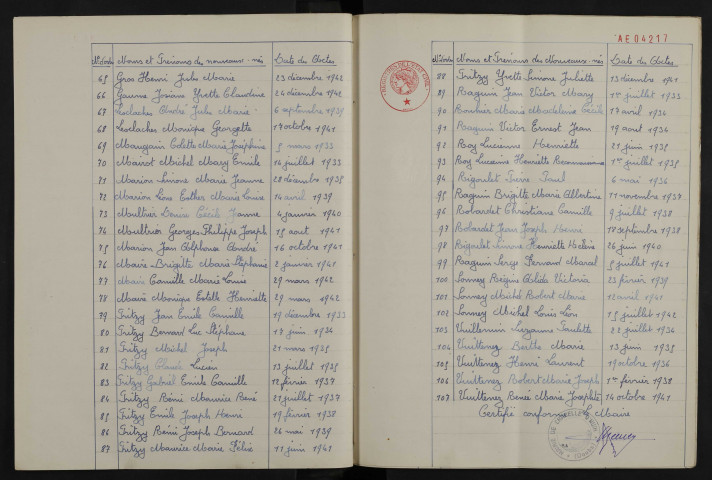 N° d'ordre Noms et Prénoms des nouveaux-nés Date des Actes
65 Gros Henri Jules Marie 23 décembre 1942
66 Gaume Josiane Yvette Claudine 24 décembre 1942
67 Loclaches André Jules Marie 6 septembre 1939
68 Loclaches Monique Georgette 17 octobre 1941
69 Maugain Colette Marie Joséphine 5 mars 1933
70 Mairot Michel Mary Emile 14 juillet 1933
71 Marion Simone Marie Jeanne 28 décembre 1935
72 Marion Lina Esther Marie Louise 14 avril 1939
73 Moultier Denise Cécile Jeanne 4 janvier 1940
74 Moultier Georges Philippe Joseph 15 août 1941
75 Marion Jean Alphonse André 16 octobre 1941
76 Maire Brigitte Marie-Stéphanie 2 janvier 1941
77 Maire Camille Marie Louise 29 mars 1942
78 Maire Monique Estelle Henriette 29 mars 1942
79 Pritzy Jean Emile Camille 19 décembre 1933
80 Pritzy Bernard Luc Stéphane 17 juin 1934
81 Pritzy Michel Joseph 21 mars 1935
82 Pritzy Claude Lucien 13 juillet 1935
83 Pritzy Gabriel Emile Camille 12 février 1937
84 Pritzy Rémi Maurice René 21 juillet 1937
85 Pritzy Emile Joseph Henri 19 février 1938
86 Pritzy Rémi Joseph Bernard 26 mai 1939
87 Pritzy Maurice Marie Félix 11 juin 1941
AE04217
N° d'ordre Noms et Prénoms des Nouveaux-nés Date des Actes
88 Pritzy Yvette Simone Juliette 13 décembre 1941
89 Raguin Jean Victor Mary 1er juillet 1933
90 Marie Madeleine Cécile 17 avril 1934
91 Raguin Victor Ernest Jean 19 août 1934
92 Roy Lucienne Henriette 21 juin 1935
93 Roy Lucienne Henriette 1er juillet 1935
94 Rigoulet Pierre Paul 6 mai 1936
95 Raguin Brigitte Marie Albertine 11 novembre 1937
96 Robardet Christiane Camille 9 juillet 1938
97 Robardet Jean Joseph Henri 18 septembre 1938
98 Rigoulet Simone Henriette Hélène 26 juin 1940
99 Raguin Serge Fernand Marcel 5 juillet 1941
100 Sornay Régine Alida Victoria 23 février 1939
101 Sornay Michel Robert Marie 12 avril 1941
102 Sornay Michel Louis Léon 15 juillet 1942
103 Vuillemin Suzanne Paulette 22 juillet 1934
104 Vuittenez Berthe Marie 13 juin 1935
105 Vuittenez Henri Laurent 19 octobre 1936
106 Vuittenez Robert Marie Joseph 1er février 1938
107 Vuittenez Renée Marie Josephte 14 octobre 1941
Certifié conforme Le Maire